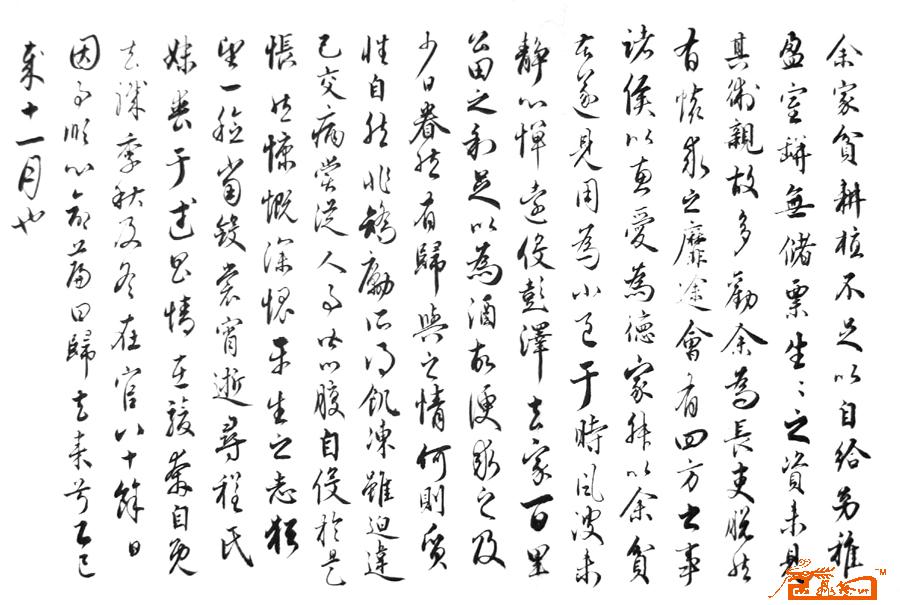 余家貧耕植不足以自給幼稚
盈室缾無儲粟生〻之資未見
其術親故多勸余為長吏脫然
有懷求之靡途會有四方之事
諸侯以惠愛為德家叔以余貧
苦遂見用為小邑于時風波未
靜心憚遠役彭澤去家百里
公田之利足以為酒故便求之及
少日眷然有歸與之情何則質
性自然非矯勵所得飢凍雖迫違
己交病嘗從人事皆口腹自役於是
悵然慷慨深愧平生之志猶
望一稔當斂裳宵逝尋程氏
妹喪于武昌情在駿奔自免
去職季秋及冬在官八十餘日
因事順心命篇曰歸去來兮乙巳
歲十一月也